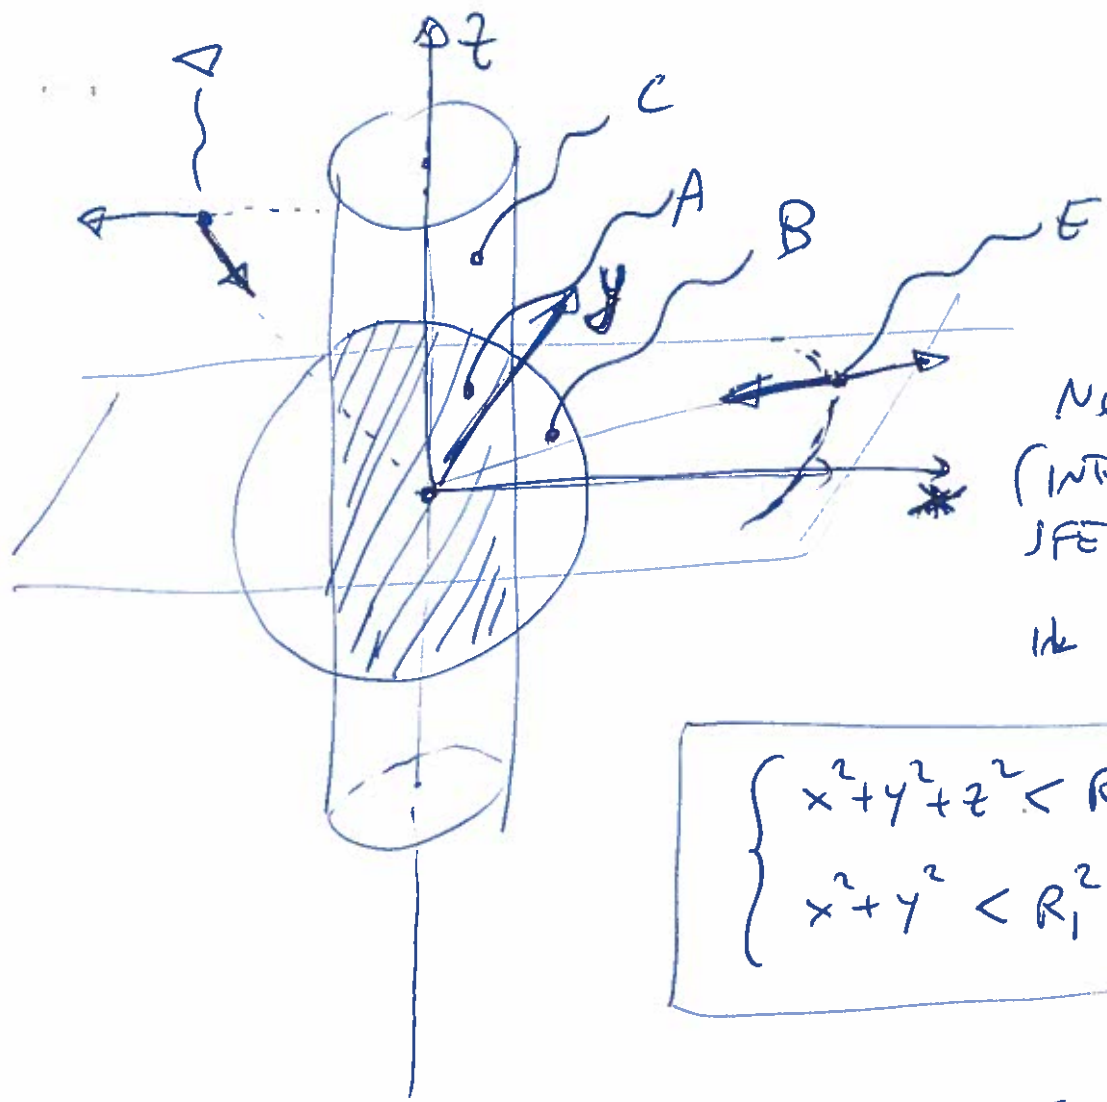 z
C
A
B
E
y
x
(INT
SFE
x² + y² + z² < R
x² + y² < R₁²